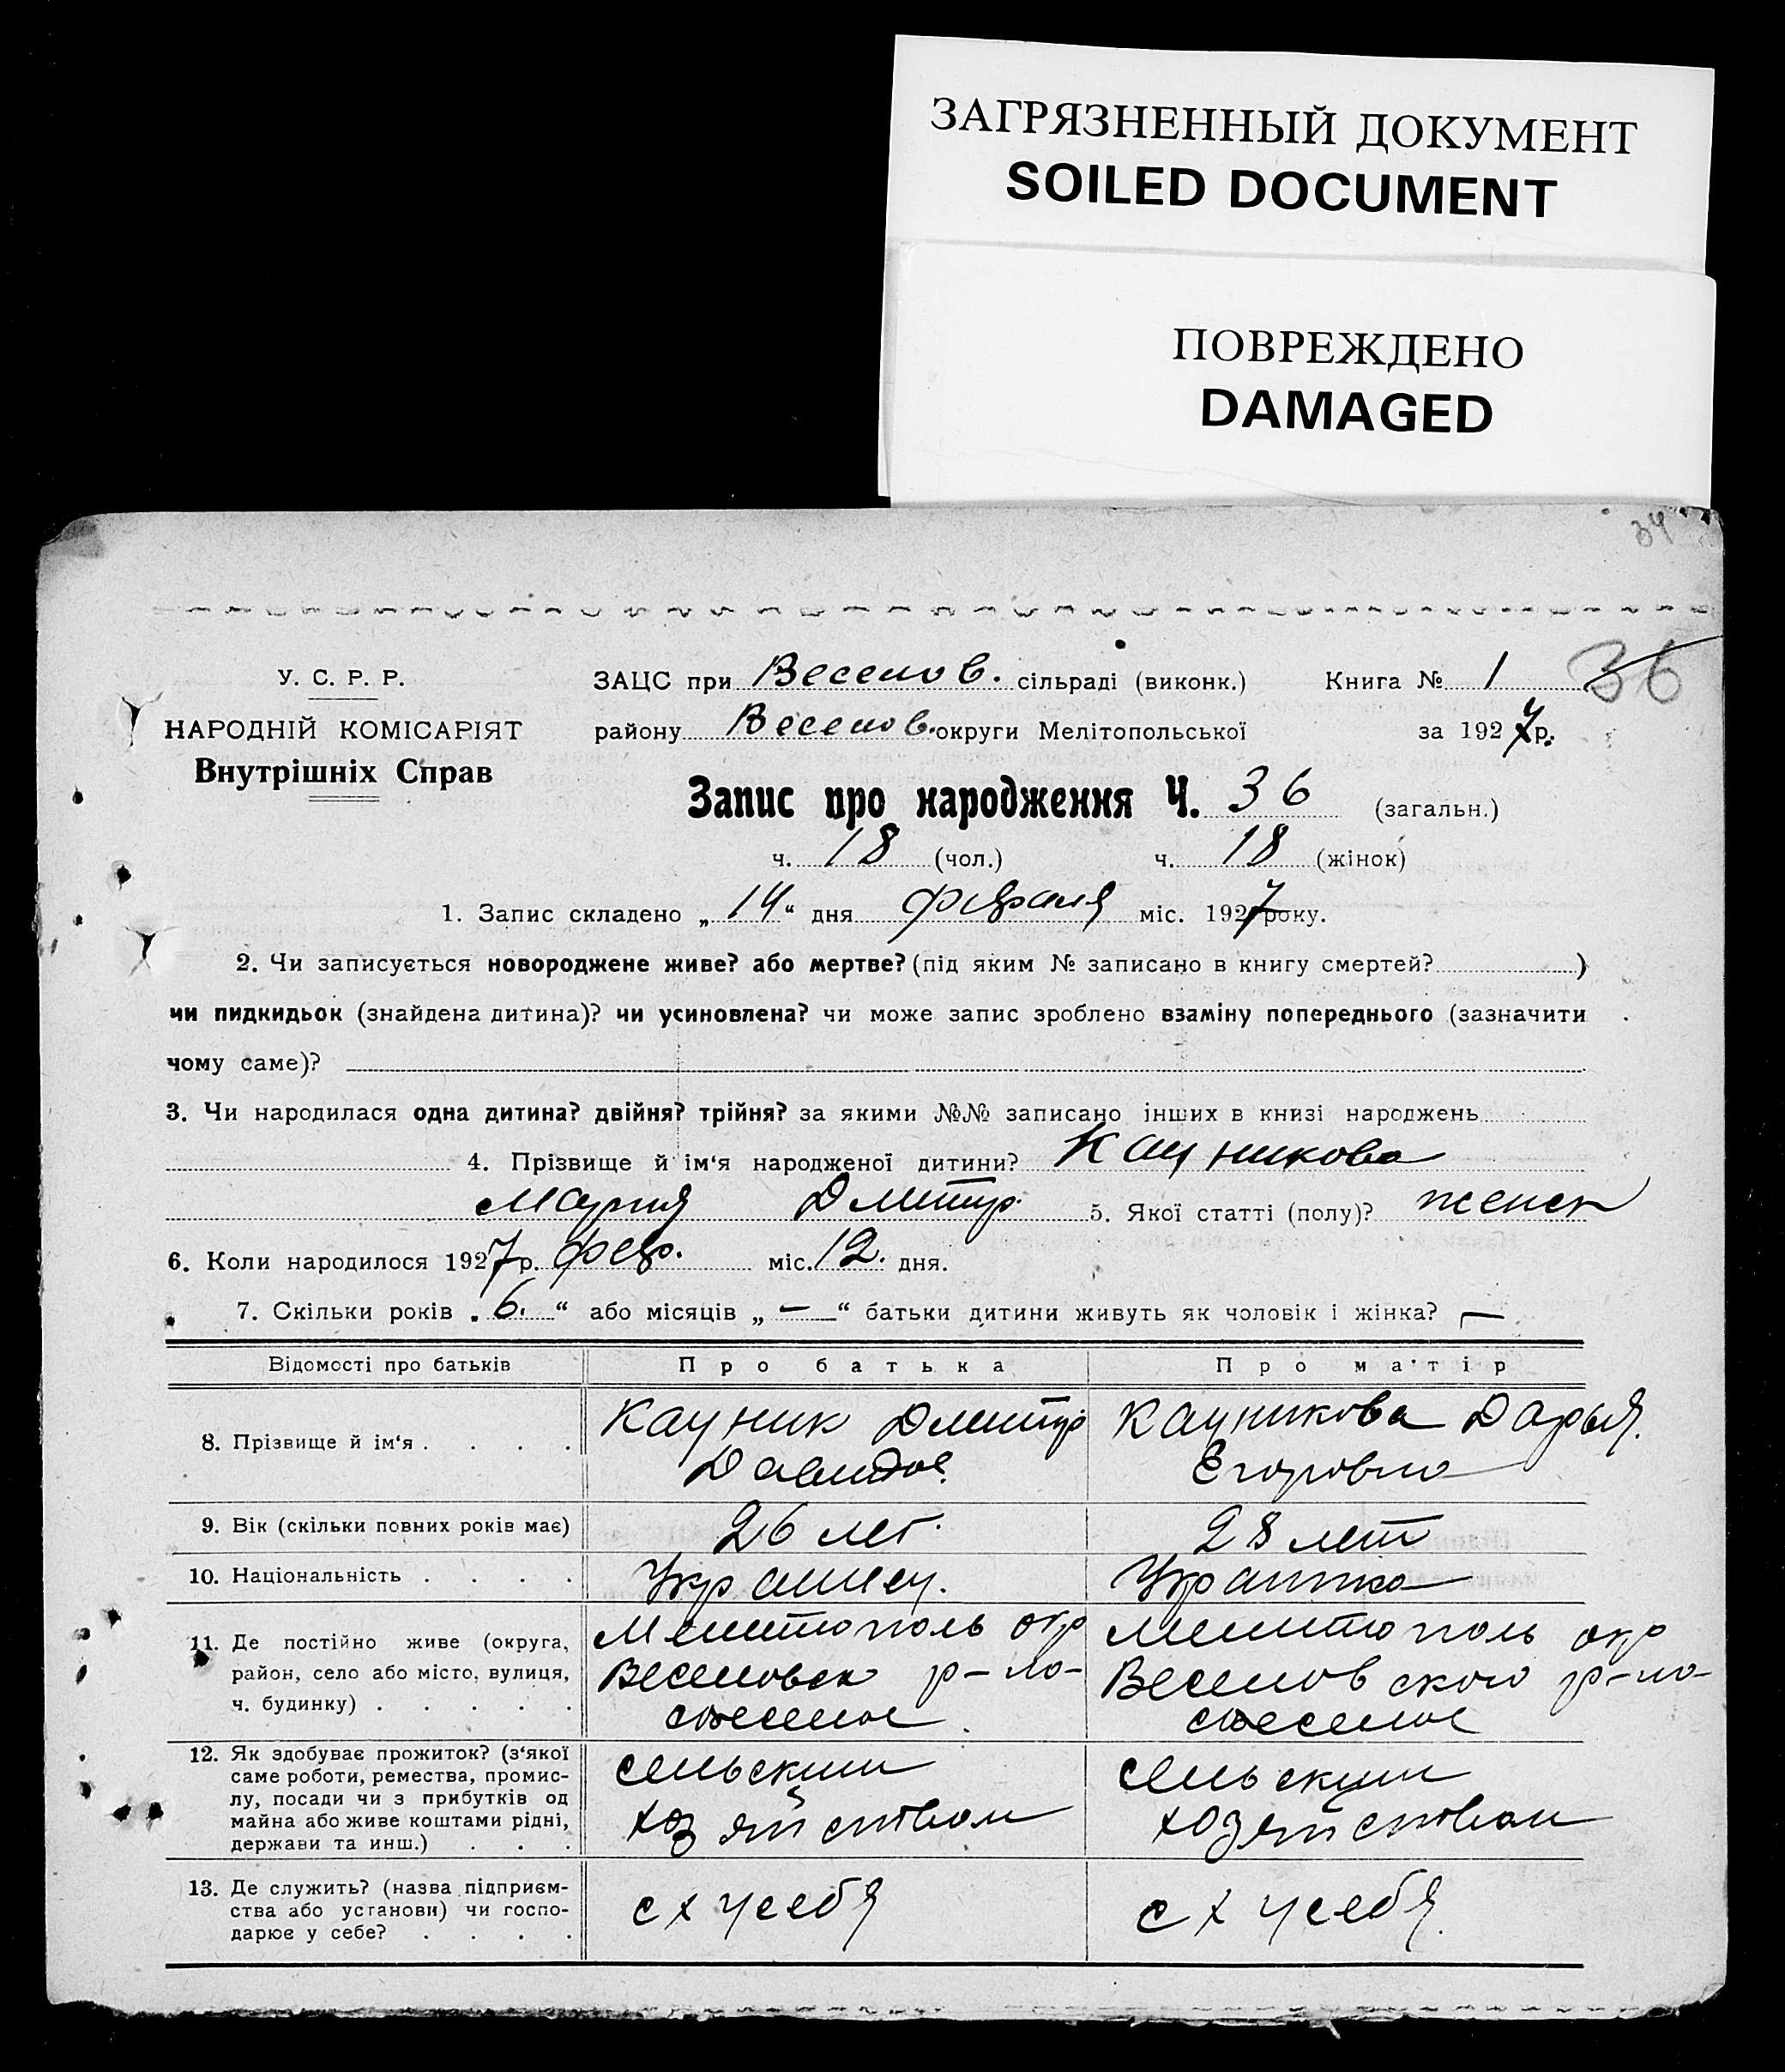 ЗАГРЯЗНЕННЫЙ ДОКУМЕНТ
SOILED DOCUMENT
ПОВРЕЖДЕНО
DAMAGED
34
У. С. Р. Р.
НАРОДНІЙ КОМІСАРІЯТ
Внутрішніх Справ
ЗАЦС при Веселов. сільраді (виконк.) Книга № 1 36
району Веселов. округи Мелітопольської за 1927 р.
Запис про народження Ч. 36 (загальн.)
ч. 18 (чол.) ч. 18 (жінок)
1. Запис складено „ 14 “ дня февраля міс. 1927 року.
2. Чи записується новороджене живе? або мертве? (під яким № записано в книгу смертей? )
чи пидкидьок (знайдена дитина)? чи усиновлена? чи може запис зроблено взаміну попереднього (зазначити
чому саме)?
3. Чи народилася одна дитина? двійня? трійня? за якими №№ записано інших в книзі народжень
4. Прізвище й ім‘я народженої дитини? Кацникова
Мария Дмитр. 5. Якої статті (полу)? женск
6. Коли народилося 1927 р. фев. міс. 12. дня.
7. Скільки років „ 6. “ або місяців „ — “ батьки дитини живуть як чоловік і жінка? —
Відомості про батьків Про батька Про матір
8. Прізвище й ім‘я . . . . Кацник Дмитр Давидов. Кацникова Дарья Егоровна
9. Вік (скільки повних років має) 26 лет. 28 лет
10. Національність . . . . Украинец. Украинка
11. Де постійно живе (округа, Мелитополь окр Мелитополь окр
район, село або місто, вулиця, Веселовск р-но- Веселовского р-но-
ч. будинку) . . . . . с Веселое с Веселое
12. Як здобуває прожиток? (з‘якої
саме роботи, ремества, промис- сельским сельским
лу, посади чи з прибутків од
майна або живе коштами рідні, хозяйством хозяйством
держави та инш.) . . .
13. Де служить? (назва підприєм-
ства або установи) чи госпо- с х у себя с х у себя.
дарює у себе? . . . .